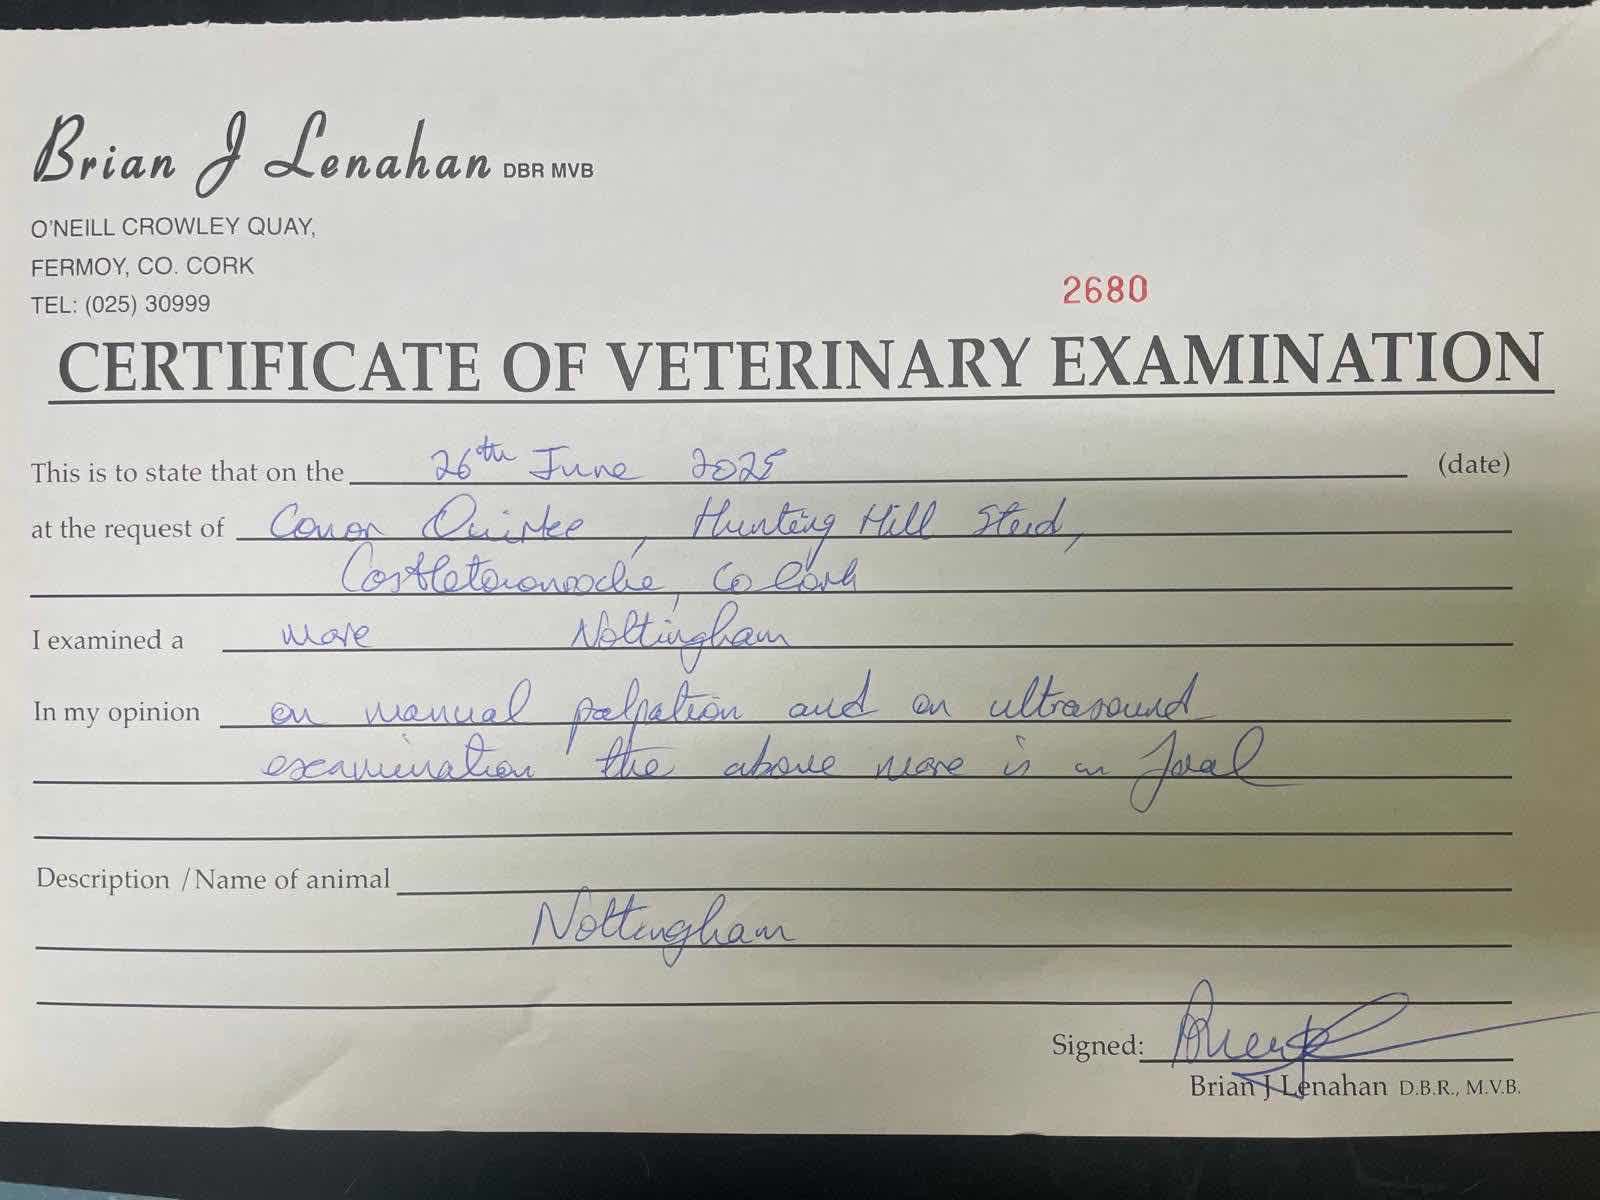 Brian J Lenahan DBR MVB
O'NEILL CROWLEY QUAY,
FERMOY, CO. CORK
TEL: (025) 30999
2680
CERTIFICATE OF VETERINARY EXAMINATION
This is to state that on the 26th June 2025 (date)
at the request of Conor Quirke, Hunting Hill Stud,
Castletownroche, Co Cork
I examined a mare Nottingham
In my opinion on manual palpation and on ultrasound
examination the above mare is in foal
Description / Name of animal
Nottingham
Signed:
Brian J Lenahan D.B.R., M.V.B.